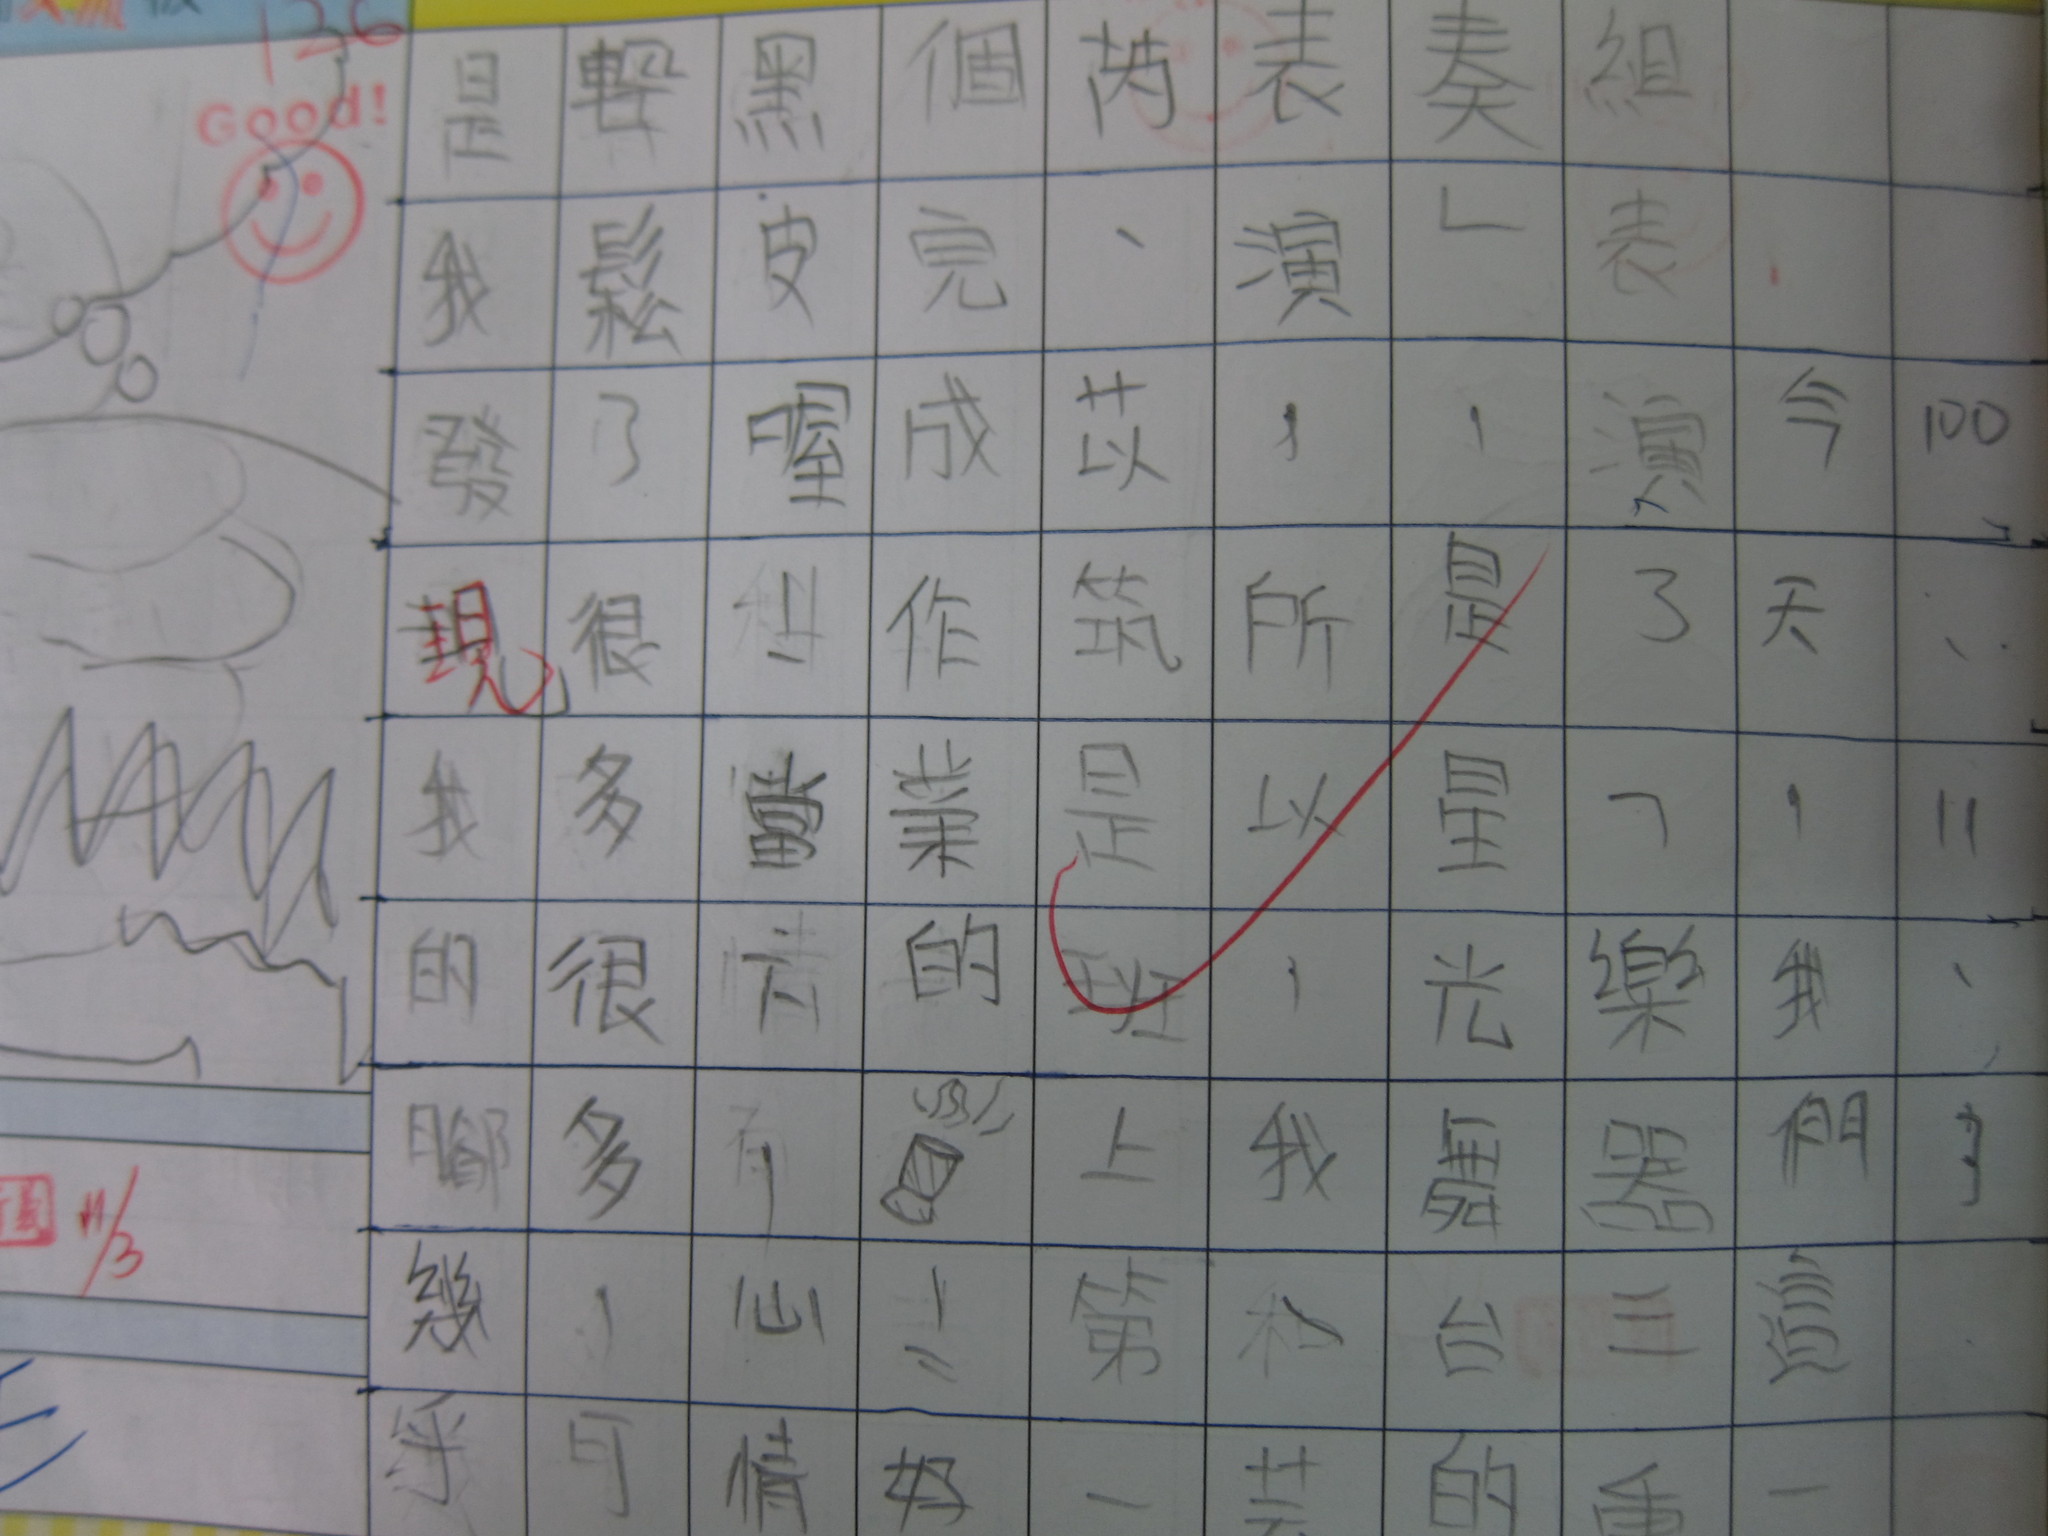 100、11、3
今天，我們這一
組表演了「樂器三重
奏」，是星光舞台的
表演，所以，我和芸
芮、苡筑是班上第一
個完成作業的！好
黑皮喔！當心情
輕鬆了很多很多，可
是我發現我的腳幾乎
126
Good!
11/3